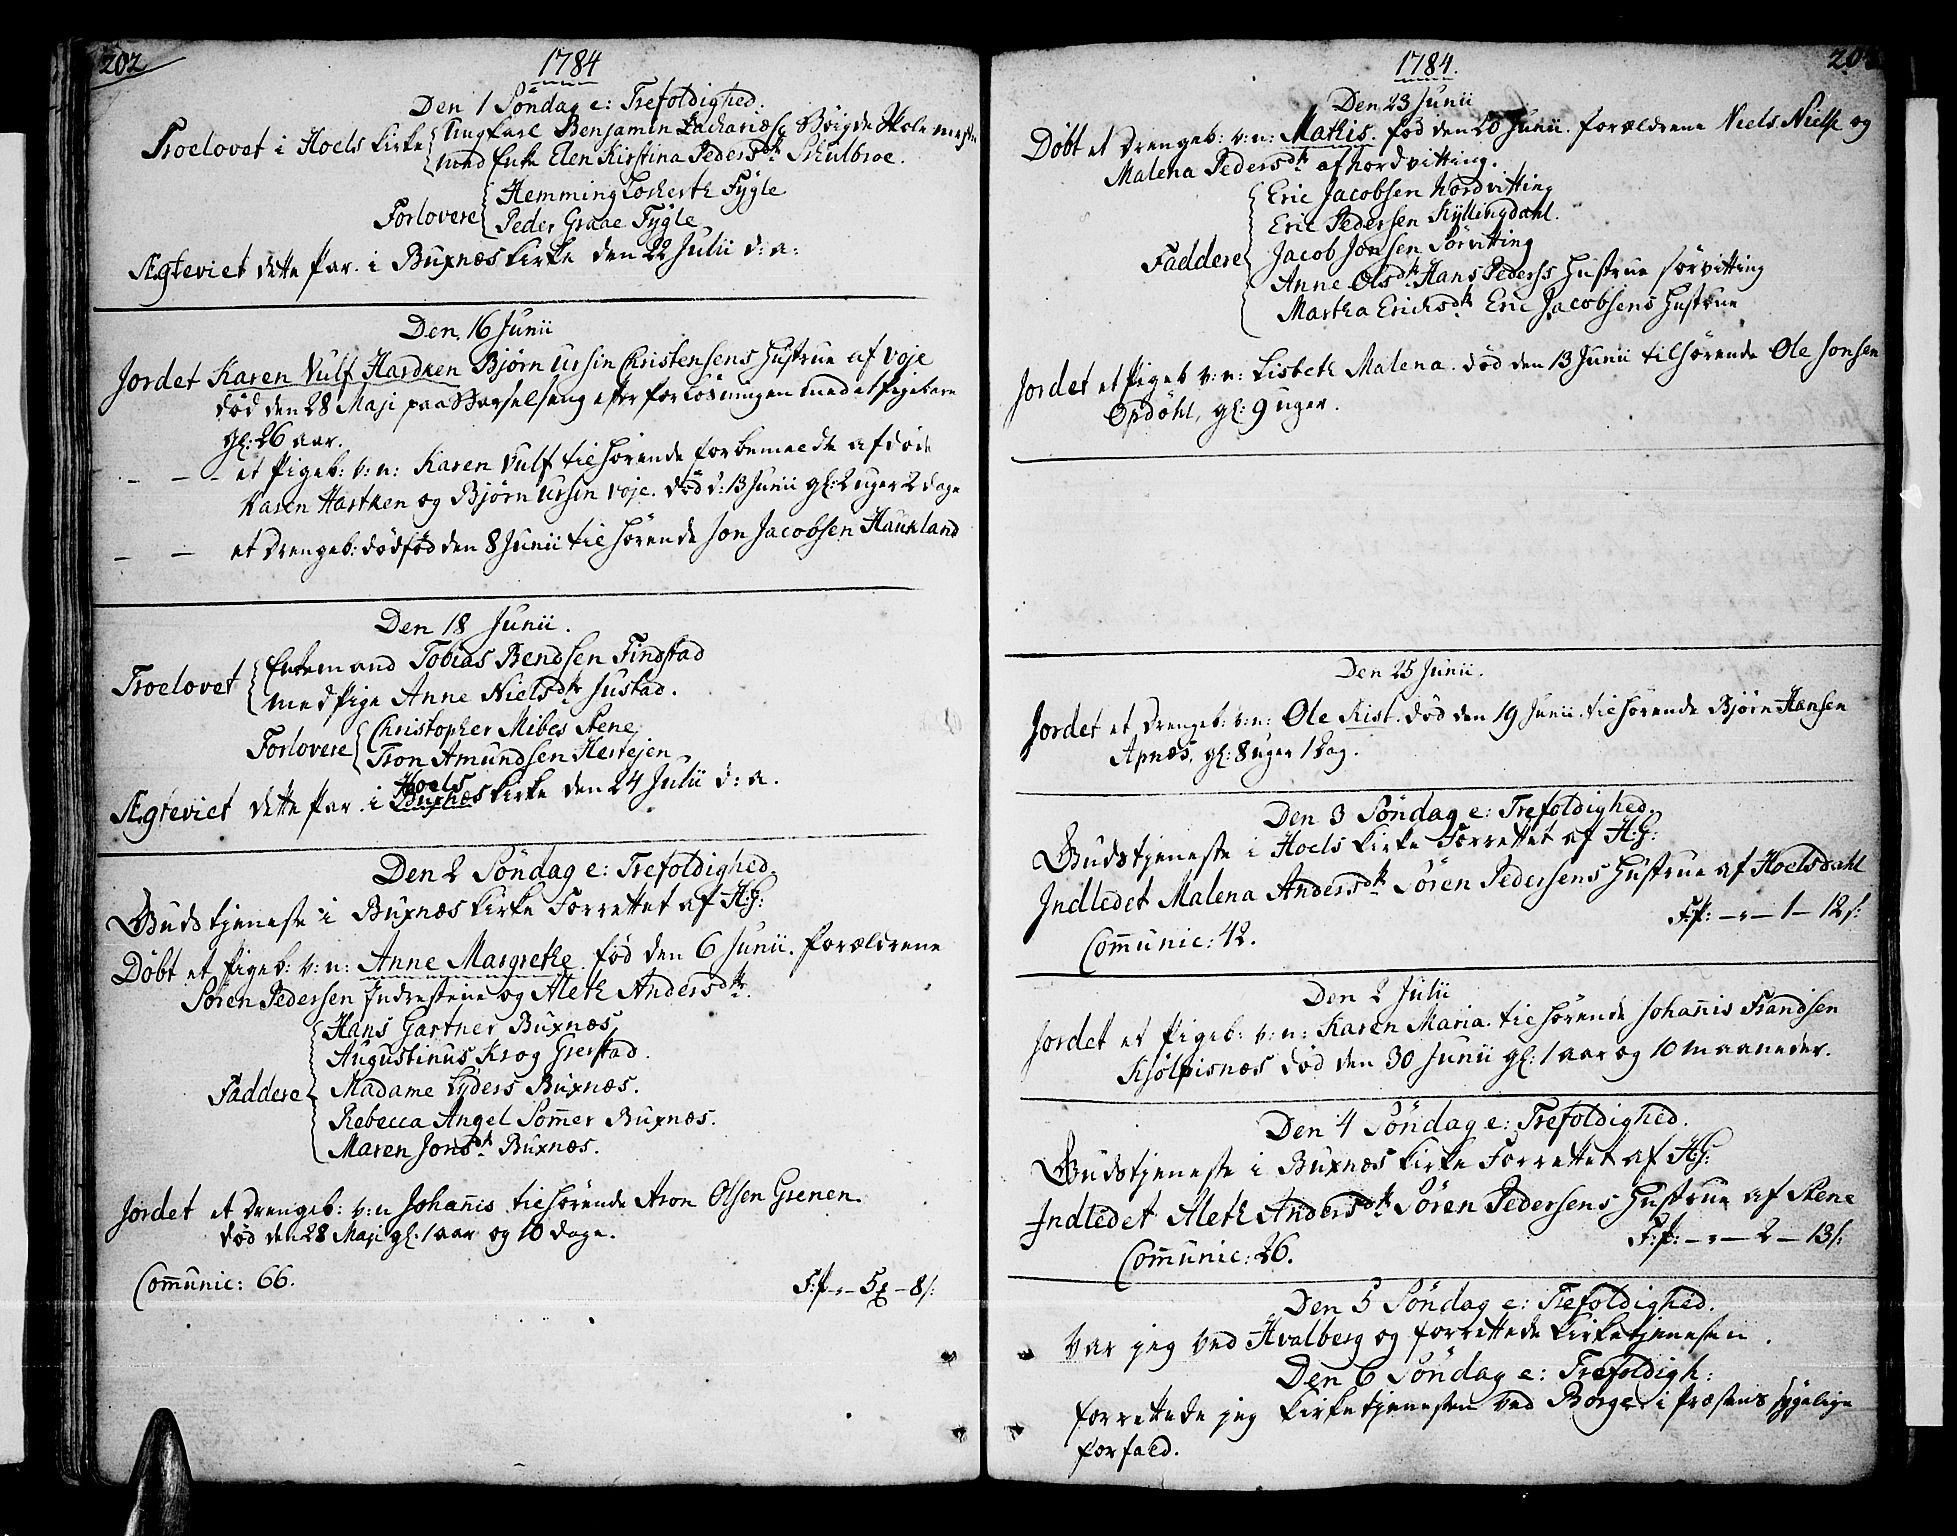 202
1784
Den 1 Söndag e: Trefoldighed.
Troelovet i Hoels Kirke Ungkarl Benjamin Zachariæs: Bøigde Skole mester
med Enke Elen Kirstina Pedersdtr Schulbroe.
Forlovere Hemming Lockerth Fÿgle
Peder Graae Fÿgle
Ægteviet dette Par i Buxnæs Kirke den 22 Julii d: a:
Den 16 Junii
Jordet Karen Vulf Hardken Bjørn Ursin Christensens Hustrue af Voje
død den 28 Maji paa Barselseng efter forløsningen med et Pigebarn
gl: 26 aar.
- - - et Pigeb: v: n: Karen Vulf tilhørende forbemeldte afdøde
Karen Hartken og Bjørn Ursin Voje. død d: 13 Junii gl: 2 uger 2 dage
- - et Drengeb: dødfød den 8 Junii tilhørende Jon Jacobsen Haukland
Den 18 Junii.
Troelovet Enkemand Tobias Bendsen Findstad
med Pige Anne Nielsdtr Justad.
Forlovere Christopher Mibes Stene
Tron Amundsen Hertejen
Hoels
Ægteviet dette Par i Buxnæs Kirke den 24 Julii d: a.
Den 2 Söndag e: Trefoldighed.
Gudstjeneste i Buxnæs Kirke Forrettet af H:G:
Døbt et Pigeb: v: n: Anne Margrethe. fød den 6 Junii. Forældrene
Søren Pedersen Indrestene og Aleth Andersdtr.
Hans Gartner Buxnæs
Augustinus Krog Gierstad.
Faddere Madame Lÿders Buxnæs.
Rebecca Angel Som̄er Buxnæs.
Maren Jonsdtr Buxnæs.
Jordet et Drengeb: v: n Johan̄is tilhørende Aron Olsen Grenen.
død den 28 Maji gl. 1 aar og 10 dage.
Com̄unic: 66.
F: f - : - 5 - 8 s:
1784.
Den 23 Junii
Døbt et Drengeb: v: n: Mathis. fød den 20 Junii. forældrene Niels Niels: og
Malena Pedersdtr af Nordvitting.
Eric Jacobsen Nordvitting
Eric Pedersen Kÿllingdahl.
Faddere Jacob Jonsen Sørvitting
Anne Olsdtr Hans Peders's Hustrue Sørvitting
Martha Ericksdtr Eric Jacobsens Hustrue
Jordet et Pigeb v: n: Lisbeth Malena. død den 13 Junii tilhørende Ole Jonsen
Opdöhl, gl: 9 uger.
Den 25 Junii.
Jordet et Drengeb: v: n: Ole Rist. død den 19 Junii. tilhørende Bjørn Hansen
Apnæs, gl: 8 uger 1 Dag.
Den 3 Söndag e: Trefoldighed.
Gudstjeneste i Hoels Kirke Forrettet af H:G:
Indledet Malena Andersdtr Søren Pedersens Hustrue af Hoelsdahl
F: f: - : - 1 - 12 s:
Com̄unic: 42.
Den 2 Julii
Jordet et Pigeb: v: n: Karen Maria. tilhørende Johan̄is Frandsen
Kjölpisnæs død den 30 Junii gl: 1 aar og 10 maaneder.
Den 4 Söndag e: Trefoldighed.
Gudstjeneste i Buxnæs Kirke Forrettet af H:G:
Indledet Aleth Andersdtr Søren Pedersens Hustrue af Stene
F: f: - : - 2 - 13 s:
Com̄unic: 26.
Den 5 Söndag e: Trefoldighed.
Var jeg ved Hvalberg og forrettede Kirketjenesten.
Den 6 Söndag e: Trefoldigh:
forrettede jeg Kirketjenesten ved Borge i Præstens sÿgelige
forfald.